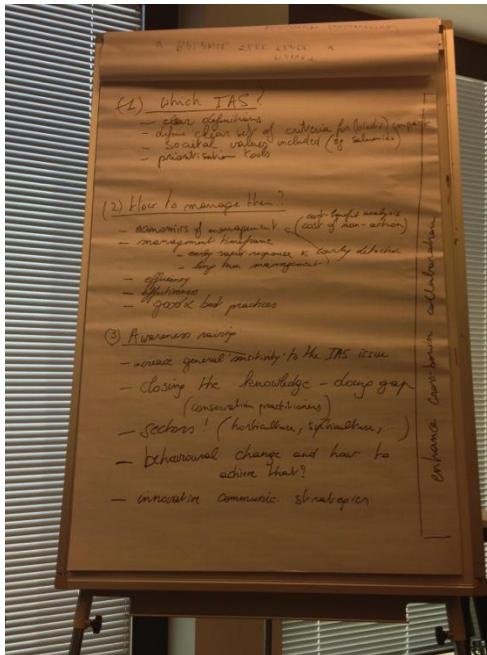 (1) Which IAS?
– clear definitions
– define clear set of criteria for (biodiv) impact
– societal values included (eg salmonids)
– prioritisation tools
(2) How to manage them?
– economics of management (cost-benefit analysis
cost of non-action)
– management timeframe
– early rapid response & early detection
– long term management
– efficiency
– effectiveness
– good & best practices
(3) Awareness raising
– increase general sensitivity to the IAS issue
– closing the knowledge – doing gap
(conservation practitioners)
– sectors! (horticulture, sylviculture, ..)
– behavioural change and how to
achieve that?
– innovative communic. strategies
enhance crossborder collaboration